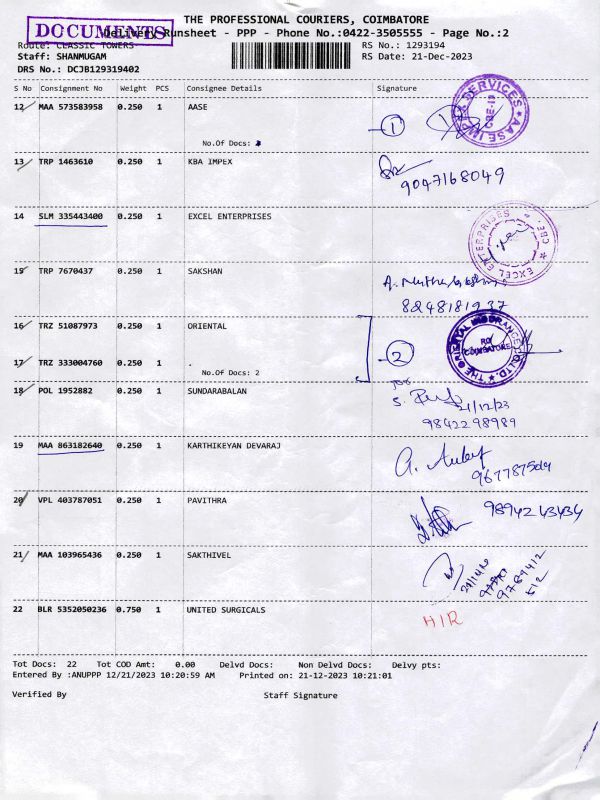 THE PROFESSIONAL COURIERS, COIMBATORE
DOCUMENTS
Delivery Runsheet - PPP - Phone No.:0422-3505555 - Page No.:2
Route: CLASSIC TOWERS RS No.: 1293194
Staff: SHANMUGAM RS Date: 21-Dec-2023
DRS No.: DCJB129319402
S No Consignment No Weight PCS Consignee Details Signature
12 MAA 573583958 0.250 1 AASE
1
AASE IMPEX SERVICES
CBE-18
No.Of Docs:
13 TRP 1463610 0.250 1 KBA IMPEX
9047168049
14 SLM 335443400 0.250 1 EXCEL ENTERPRISES
EXCEL ENTERPRISES CBE.
15 TRP 7670437 0.250 1 SAKSHAN
8248181937
16 TRZ 51087973 0.250 1 ORIENTAL
THE ORIENTAL INSURANCE CO. LTD.
RO
COIMBATORE
2
17 TRZ 333004760 0.250 1 .
No.Of Docs: 2
18 POL 1952882 0.250 1 SUNDARABALAN
21/12/23
9842298989
19 MAA 863182640 0.250 1 KARTHIKEYAN DEVARAJ
20 VPL 403787051 0.250 1 PAVITHRA
9894243434
21 MAA 103965436 0.250 1 SAKTHIVEL
22 BLR 5352050236 0.750 1 UNITED SURGICALS
HIR
Tot Docs: 22 Tot COD Amt: 0.00 Delvd Docs: Non Delvd Docs: Delvy pts:
Entered By :ANUPPP 12/21/2023 10:20:59 AM Printed on: 21-12-2023 10:21:01
Verified By Staff Signature